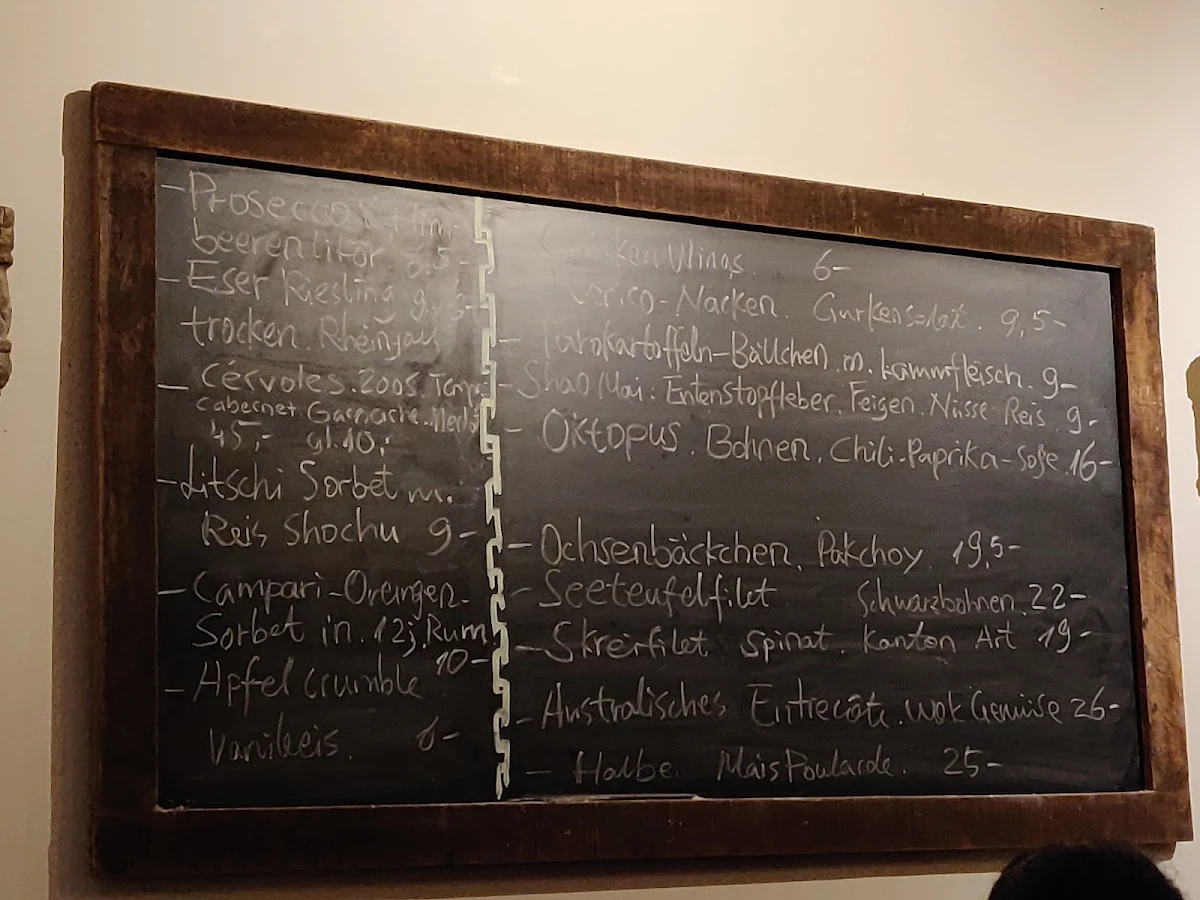 - Prosecco
beerenlikör
- Eser Riesling
trocken Rheingau
- Cérvoles. 2005
Cabernet. Garnache.
45,- gl. 10,-
- Litschi Sorbet m.
Reis Shochu 9-
- Campari-Orangen-
Sorbet in. 12j. Rum
10-
- Apfel Crumble
Vanilleis.
6-
- Nacken. Gurkensalat. 9,5-
- Tarokartoffeln-Bällchen. m. kammfleisch. 9-
- Shao Mai: Entenstopfleber. Feigen. Nüsse Reis 9-
- Oktopus. Bohnen. Chili-Paprika-Soße. 16-
- Ochsenbäckchen. Pakchoy. 19,5-
- Seeteufelfilet Schwarzbohnen. 22-
- Skreifilet Spinat. Kanton Art 19-
- Australisches Entrecôte. wok Gemüse 26-
- Halbe. Mais Poularde. 25-